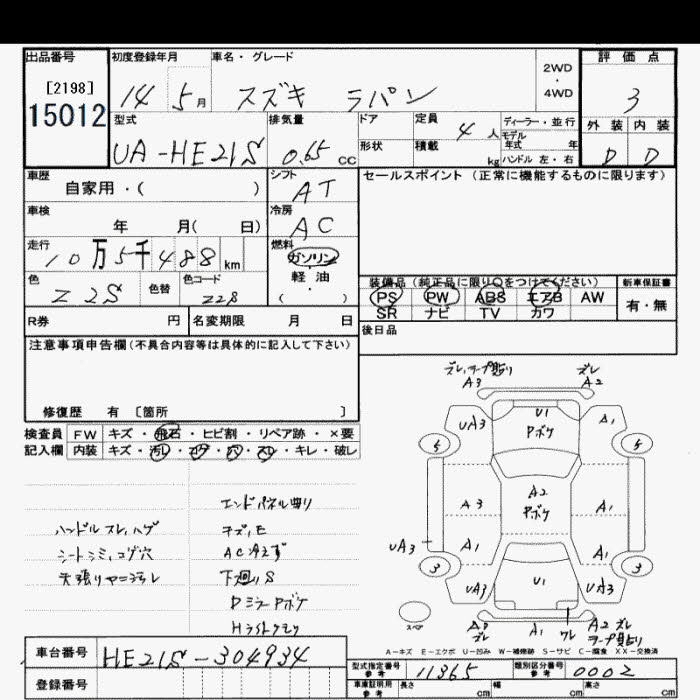 出品番号 初度登録年月 車名・グレード 2WD・4WD 評価点
[2198]
15012
14 5月 スズキ ラパン 3
型式 排気量 ドア 定員 4人 ディーラー・並行 外装 内装
UA-HE21S 0.65 CC 形状 積載 kg モデル年式 年 ハンドル 左・右 D D
車歴 自家用・( ) シフト AT セールスポイント (正常に機能するものに限ります)
車検 年 月( 日) 冷房 AC
走行 10万5千488km 燃料 ガソリン・軽油・( )
色 Z2S 色替 色コード Z2S
装備品 (純正品に限り○をつけてください) 新車保証書
PS PW ABS エアB AW 有・無
SR ナビ TV カワ
R券 円 名変期限 月 日 後日品
注意事項申告欄(不具合内容等は具体的に記入して下さい)
修復歴 有 [箇所 ]
検査員 FW キズ・飛石・ヒビ割・リペア跡・×要
記入欄 内装 キズ・汚レ・コゲ・穴・スレ・キレ・破レ
エンドパネル曲り
ハンドルスレ,ハゲ キズ,E
シートシミ,コゲ穴 AC冷えず
天張りヤニヨゴレ 下廻りS
DミラーPボケ
Hライトクモリ
ズレ,テープ貼り ズレ
A3 A2
UA3 U1 A1
Pボケ
5 5
A3 A2 A1
Pボケ
UA3 A1 A1
3 3
UA3 U1 UA3
スペア
A3 ズレ A1 ワレ A2 ズレ
テープ貼り
A-キズ E-エクボ U-凹み W-補修跡 S-サビ C-腐食 XX-交換済
車台番号 HE21S-304934
型式指定番号 参考 11365 類別区分番号 参考 0002
登録番号 車庫証明用 参考 長さ cm 幅 cm 高さ cm